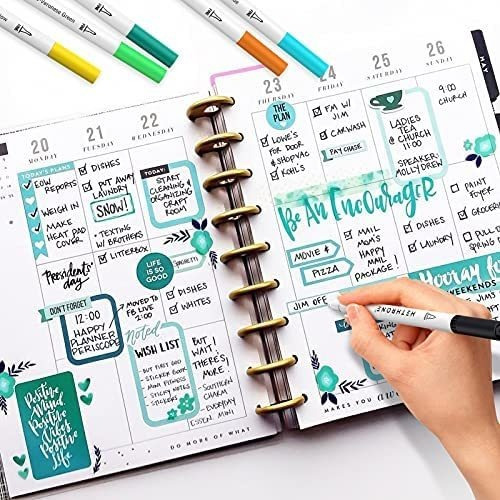 Veronese Green
20
MONDAY
21
TUESDAY
22
WEDNESDAY
TODAY'S PLANS
EOW
REPORTS
WEIGH IN
MAKE
HEAT PAD
COVER
PRESIDENTS'
DAY
DON'T FORGET
12:00
HAPPY
PLANNER
PERISCOPE
Positive
Mind
Positive
Vibes
Positive
Life
DISHES
PUT AWAY
LAUNDRY
SNOW!
* TEXTING
W/ BROTHERS
LITTERBOX
LIFE IS
SO GOOD
MOVED TO
FB LIVE
2:00
noted
WISH LIST
- BUT FIRST GOD
- STICKER BOOK
- MINI FITNESS
- STICKY NOTES
- STICKERS
TODAY:
START
CLEANING &
ORGANIZING
CRAFT
ROOM
SPAGHETTI
DISHES
WHITES
BUT,
WAIT!
THERE'S
MORE!
- SOUTHERN
CHARM
- EVERYDAY
ESSEN. MINI
DO MORE OF WHAT
23
THURSDAY
24
FRIDAY
25
SATURDAY
26
SUNDAY
MAY
THE
PLAN
LOWE'S
FOR DOOR
& SHOPVAC
KOHL'S
FM W/
JIM
CARWASH
PAY CHASE
LADIES
TEA @
CHURCH
11:00
SPEAKER:
MOLLY DREW
9:00
CHURCH
BE AN ENCOURAGER
MOVIE &
PIZZA
JIM OFF
MAIL
MOM'S
HAPPY
MAIL
PACKAGE!
DISHES
LAUNDRY
PAINT
FOYER
GROCERY
PULL O
SPRING
HOORAY
WEEKENDS
METRONIC
MAKES YOU